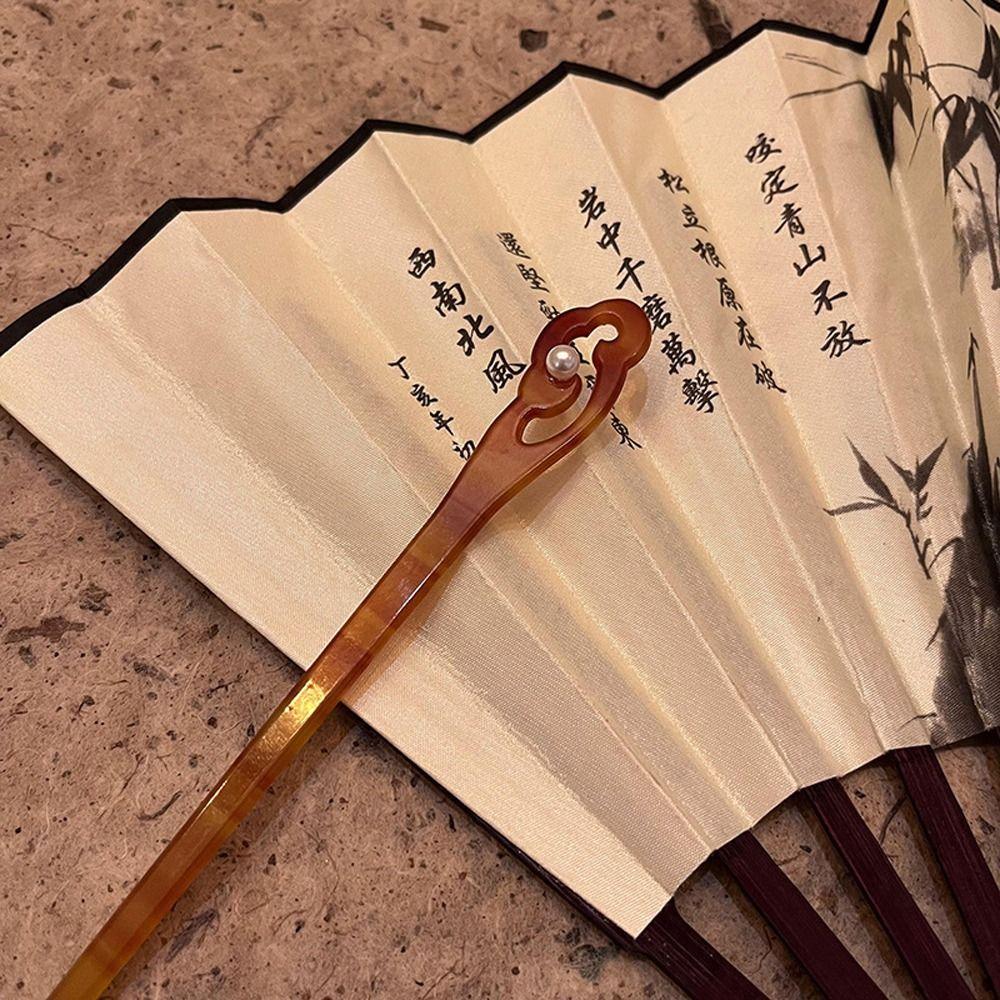 咬定青山不放
松立根原在破
岩中千磨萬擊
還堅 東
西南北風
丁亥年初